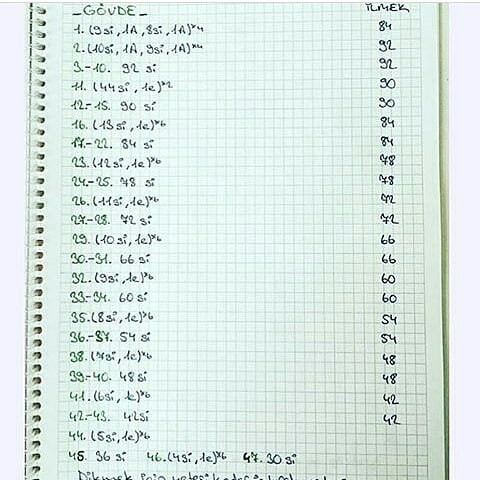 _GÖVDE_ İLMEK
1. (9si, 1A, 8si, 1A)*4 84
2. (10si, 1A, 9si, 1A)*4 92
3.-10. 92 si 92
11. (44si, 1e)*2 90
12.-15. 90 si 90
16. (13si, 1e)*6 84
17.-22. 84 si 84
23. (12si, 1e)*6 78
24.-25. 78 si 78
26. (11si, 1e)*6 72
27.-28. 72 si 72
29. (10si, 1e)*6 66
30.-31. 66 si 66
32. (9si, 1e)*6 60
33.-34. 60 si 60
35. (8si, 1e)*6 54
36.-37. 54 si 54
38. (7si, 1e)*6 48
39.-40. 48 si 48
41. (6si, 1e)*6 42
42.-43. 42si 42
44. (5si, 1e)*6
45. 36 si 46. (4si, 1e)*6 47. 30 si
Dikmek için